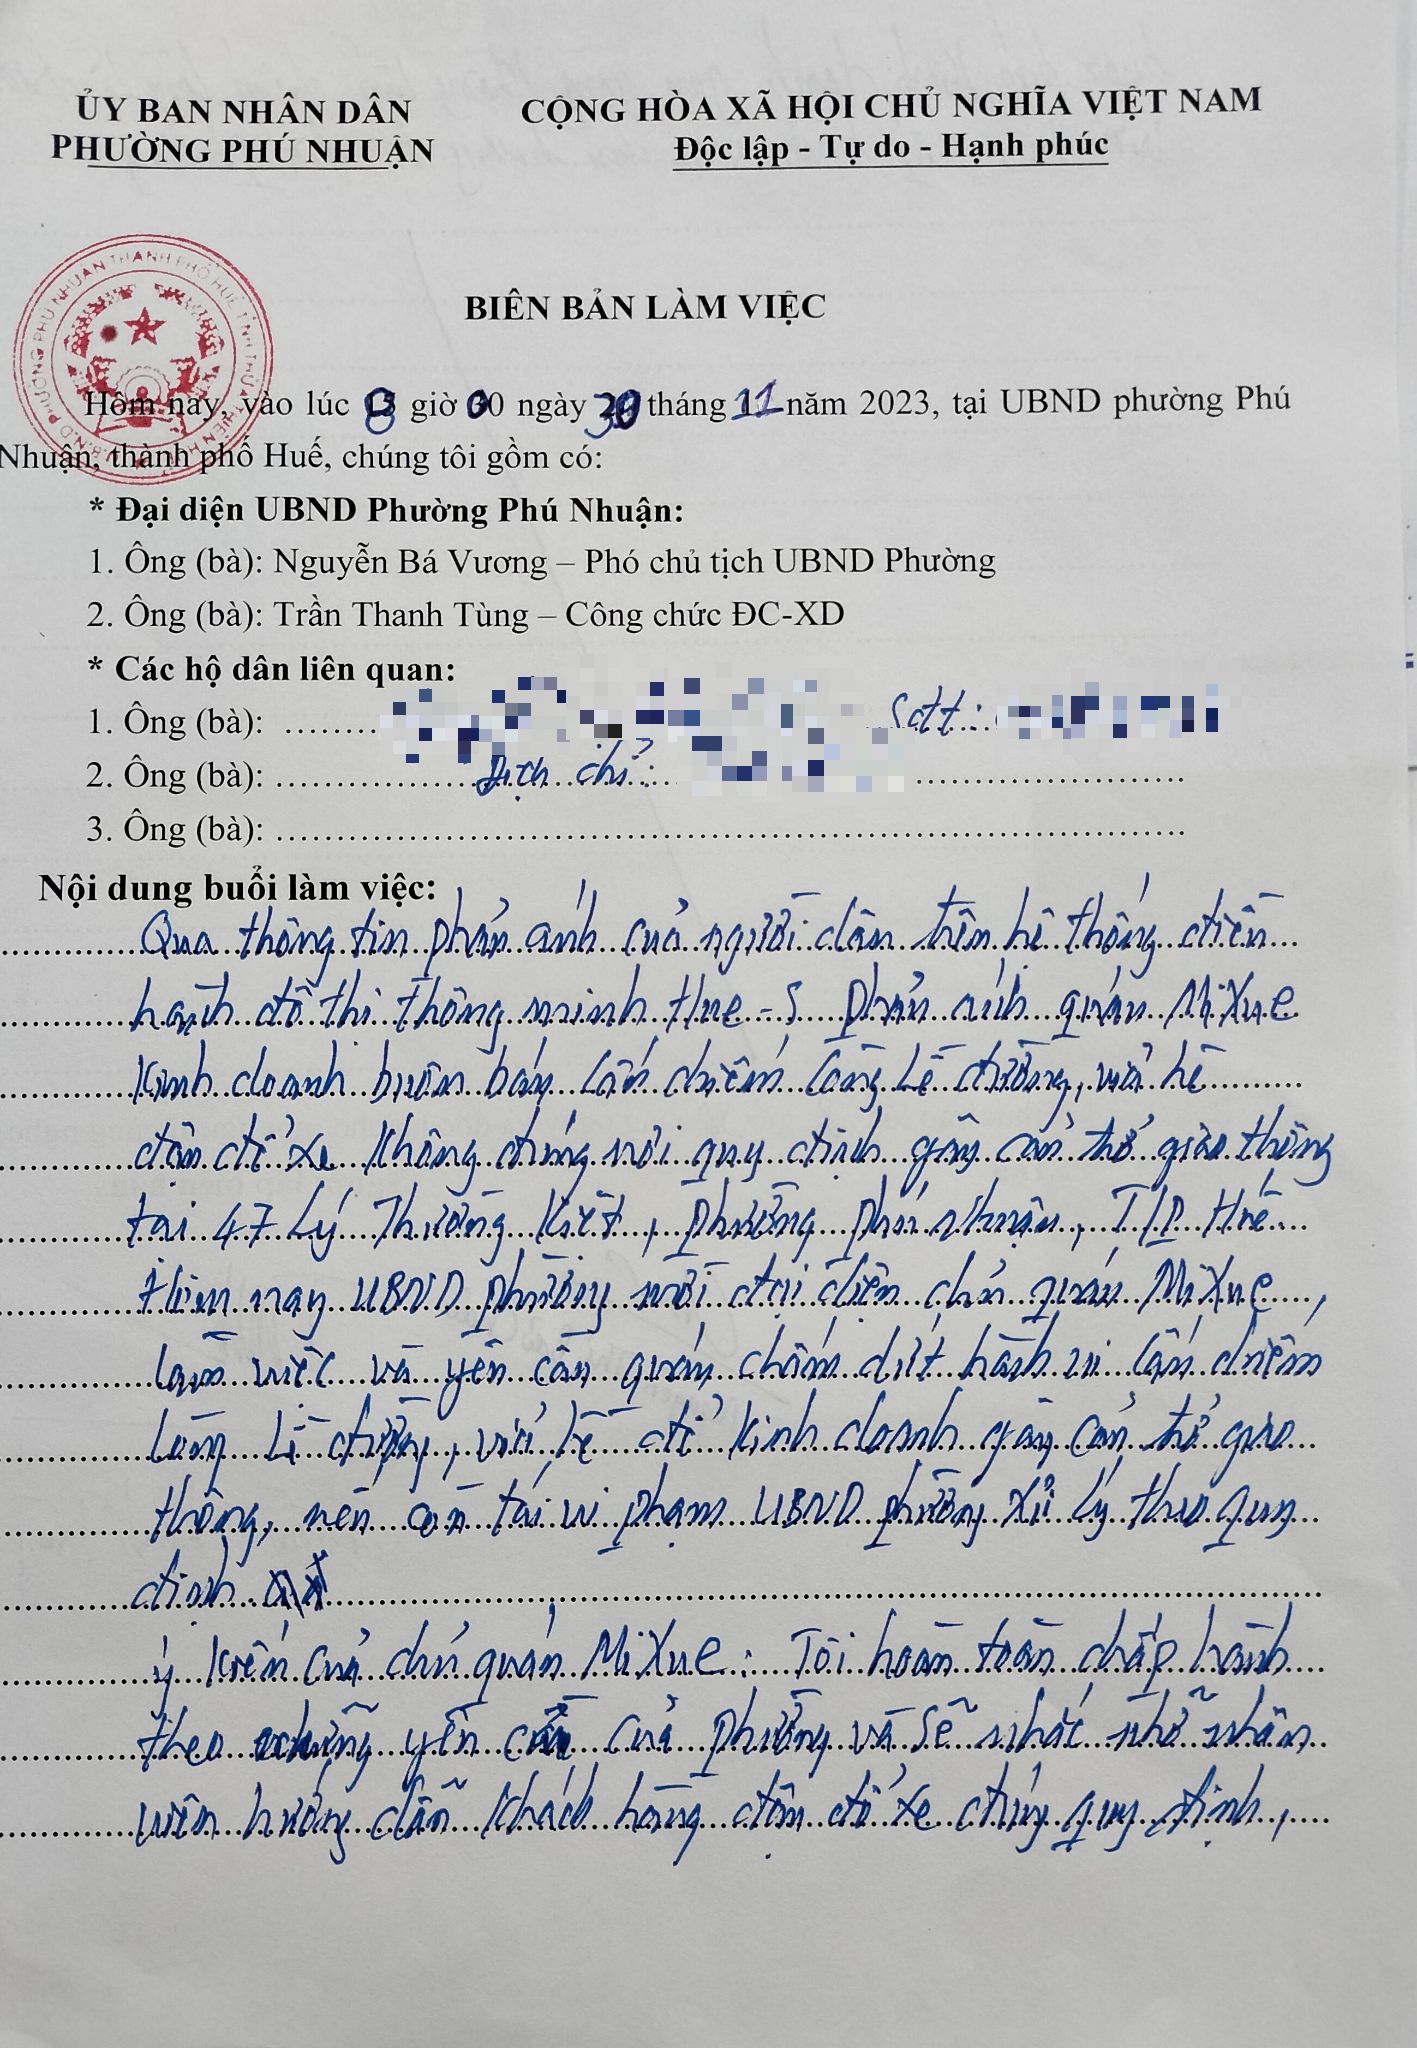 ỦY BAN NHÂN DÂN
PHƯỜNG PHÚ NHUẬN
CỘNG HÒA XÃ HỘI CHỦ NGHĨA VIỆT NAM
Độc lập - Tự do - Hạnh phúc
BIÊN BẢN LÀM VIỆC
Hôm nay, vào lúc 8 giờ 00 ngày 30 tháng 11 năm 2023, tại UBND phường Phú
Nhuận, thành phố Huế, chúng tôi gồm có:
* Đại diện UBND Phường Phú Nhuận:
1. Ông (bà): Nguyễn Bá Vương – Phó chủ tịch UBND Phường
2. Ông (bà): Trần Thanh Tùng – Công chức ĐC-XD
* Các hộ dân liên quan:
1. Ông (bà): Sđt:
2. Ông (bà): Địa chỉ:
3. Ông (bà):
Nội dung buổi làm việc:
Qua thông tin phản ánh của người dân trên hệ thống điều
hành đô thị thông minh Hue-S phản ánh quán MiXue
Kinh doanh buôn bán lấn chiếm lòng lề đường, vỉa hè
dậu để xe không đúng nơi quy định gây cản trở giao thông
tại 47 Lý Thường Kiệt, phường phú Nhuận, TP Huế
Hôm nay UBND phường mời đại diện chủ quán MiXue,
làm việc và yêu cầu quán chấm dứt hành vi lấn chiếm
lòng lề đường, vỉa hè để kinh doanh gây cản trở giao
thông, nếu còn tái vi phạm UBND phường xử lý theo quy
định
ý kiến của chủ quán MiXue: Tôi hoàn toàn chấp hành
theo những yêu cầu của phường và sẽ nhắc nhở nhân
viên hướng dẫn khách hàng đậu đổ xe đúng quy định,